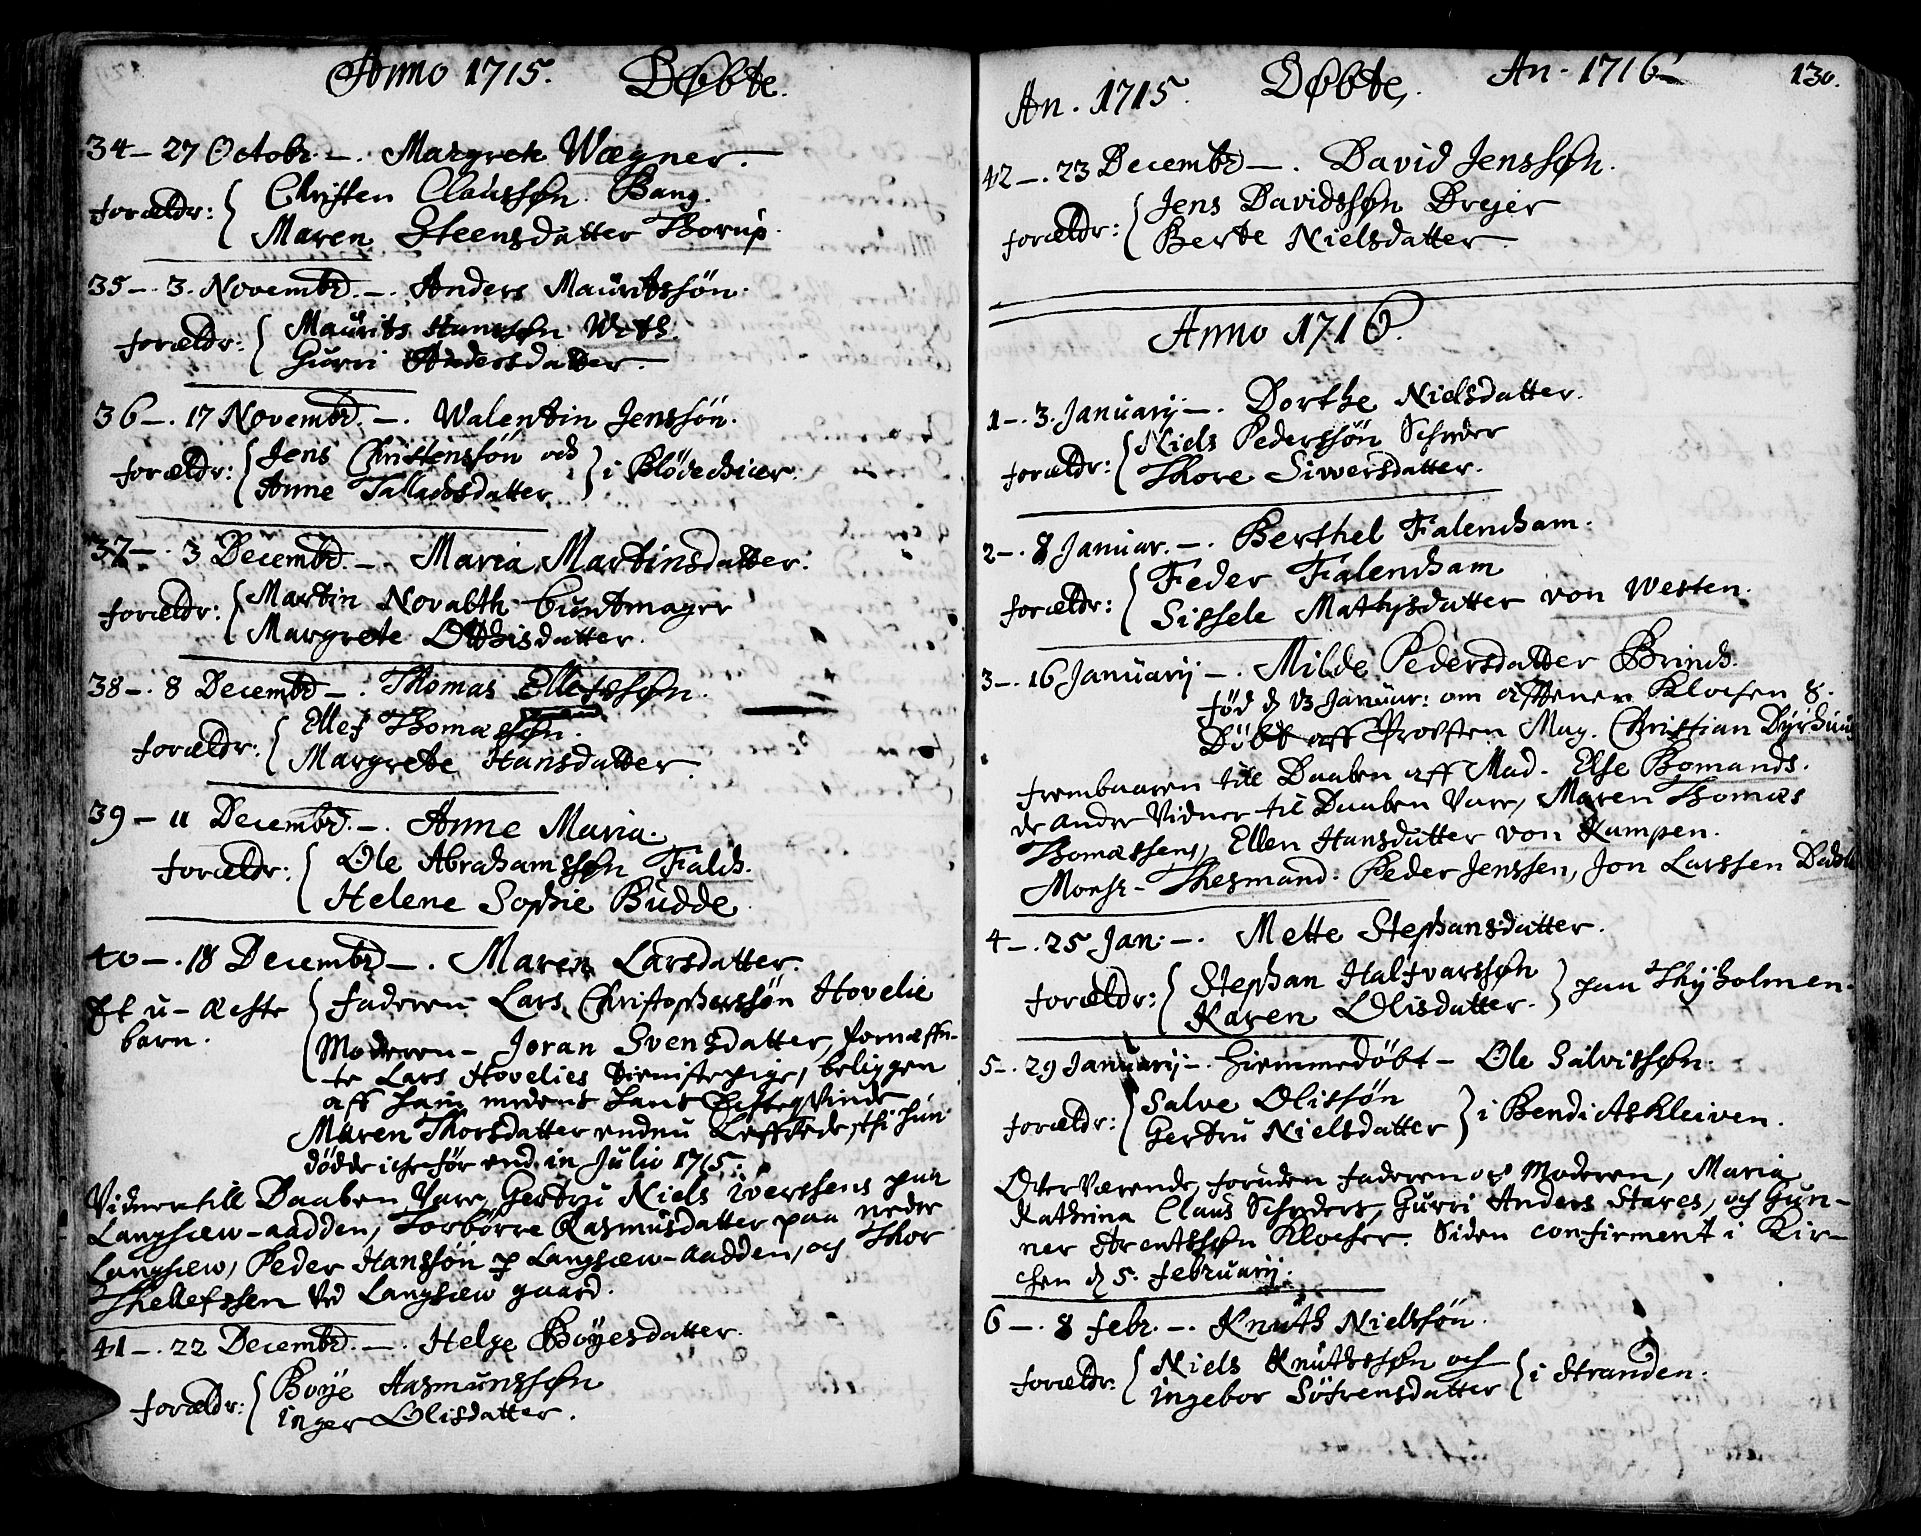 Anno 1715. Døbte.
34 - 27 Octobr. -. Margrete Wægner.
forældr: { Christen Claussøn Bang.
Maren Steensdatter Thorup.
35 -. 3. Novembr. -. Anders Mauritssøn.
forældr: { Maurits Hanssøn Weth.
Gurri Andersdatter.
36 -. 17 Novembr. -. Walentin Jenssøn.
forældr: { Jens Christenssøn och
Anne Talladsdatter } i
37 -. 3 Decembr. -. Maria Martinsdatter.
forældr: { Martin Novabth Buntmager
Margrete Otthisdatter.
38 -. 8 Decembr -. Thomas Ellefssøn.
forældr: { Ellef Thomassøn.
Margrete Hansdatter.
39 - 11 Decembr. -. Anne Maria.
forældr: { Ole Abrahamssøn Falch.
Helene Sophie Budde.
40 -. 18 Decembr -. Maren Larsdatter.
Et u-æchte { faderen Lars Christopherssøn Hovelie
barn. Moderen - Joran Svensdatter, fornæffn-
te Lars Hovelies tienistepige, beliggen
aff ham medens hans Echteqvinde
Maren Thorsdatter endnu Leffvede, thi hun
døde iche før end in Julio 1715.
Vidner till Daaben Vare, Gertru Niels Iverssens paa
Langsæw-aadden, Torbørre Rasmusdatter paa neder
Langsæw, Peder Hanssøn p Langsæw-aadden, och Thor
Thellefssen Ved Langsæw gaard.
41 -. 22 Decembr. -. Helge Bøyesdatter.
forældr: { Boye Aasmunssøn
Inger Olisdatter.
An. 1715. Døbte, An - 1716 130.
42 -. 23 Decembr -. David Jenssøn.
forældr: { Jens Davidssøn Drejer
Berte Nielsdatter.
Anno 1716.
1 -. 3. Januarij -. Dorthe Nielsdatter.
forældr: { Niels Pederssøn Schrder
Thore Siwersdatter.
2 -. 8 Januar. -. Berthel Falencham.
forældr: { Feder Falencham
Sissele Mathysdatter von Westen.
3 -. 16 Januarij -. Milde Pedersdatter Brinch.
fød d 13 Januar: om afftenen Klochen 8.
Døbt aff Provsten Mag. Christian Dyrhuus
frembaaren till Daaben aff Mad. Else Bomands.
de andre Vidner til Daaben Vare, Maren Thomas
Thomassens, Ellen Hansdatter von Kampen.
Monsr - Thesmand: Peder Jenssen, Jon Larssen
4 -. 25 Jan: -. Mette Stephansdatter.
forældr: { Stephan Halfvarssøn
Karen Olisdatter. } paa Thyholmen.
5 -. 29 Januarij -. hiemmedøbt - Ole Salvissøn.
forældr: { Salve Olissøn
Gertru Nielsdatter } i Bendi Askleiven.
OverVærende, foruden faderen og Moderen, Maria
Kathrina Claus Schrders, Gurri Anders Stares, och Gun-
ner Arentssøn Klocher. Siden confirmert i Kir-
chen d 5. februarij.
6 -. 8 febr. -. Knuth Nielssøn.
forældr: { Niels Knuthssøn och
Ingebor Søfrensdatter } i Stranden.